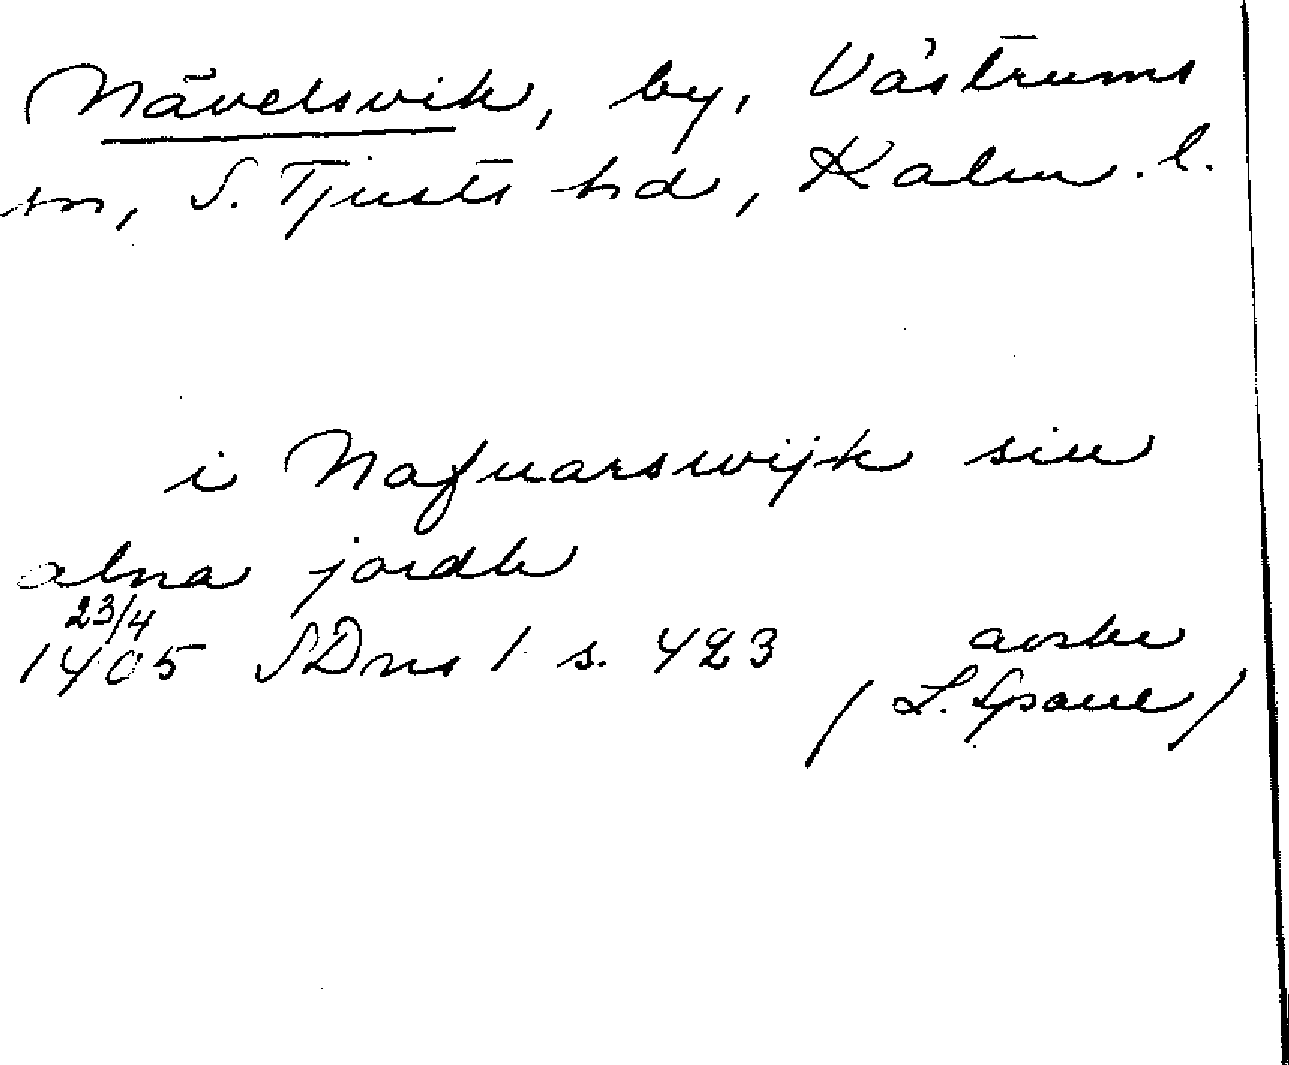 Nävelsvik, by, Västrums
sn, S. Tjusts hd, Kalm. l.
i Nafuarswijk siu
alna jordh
23/4
1405 SDns 1 s. 423 avskr
(L. Spaue)